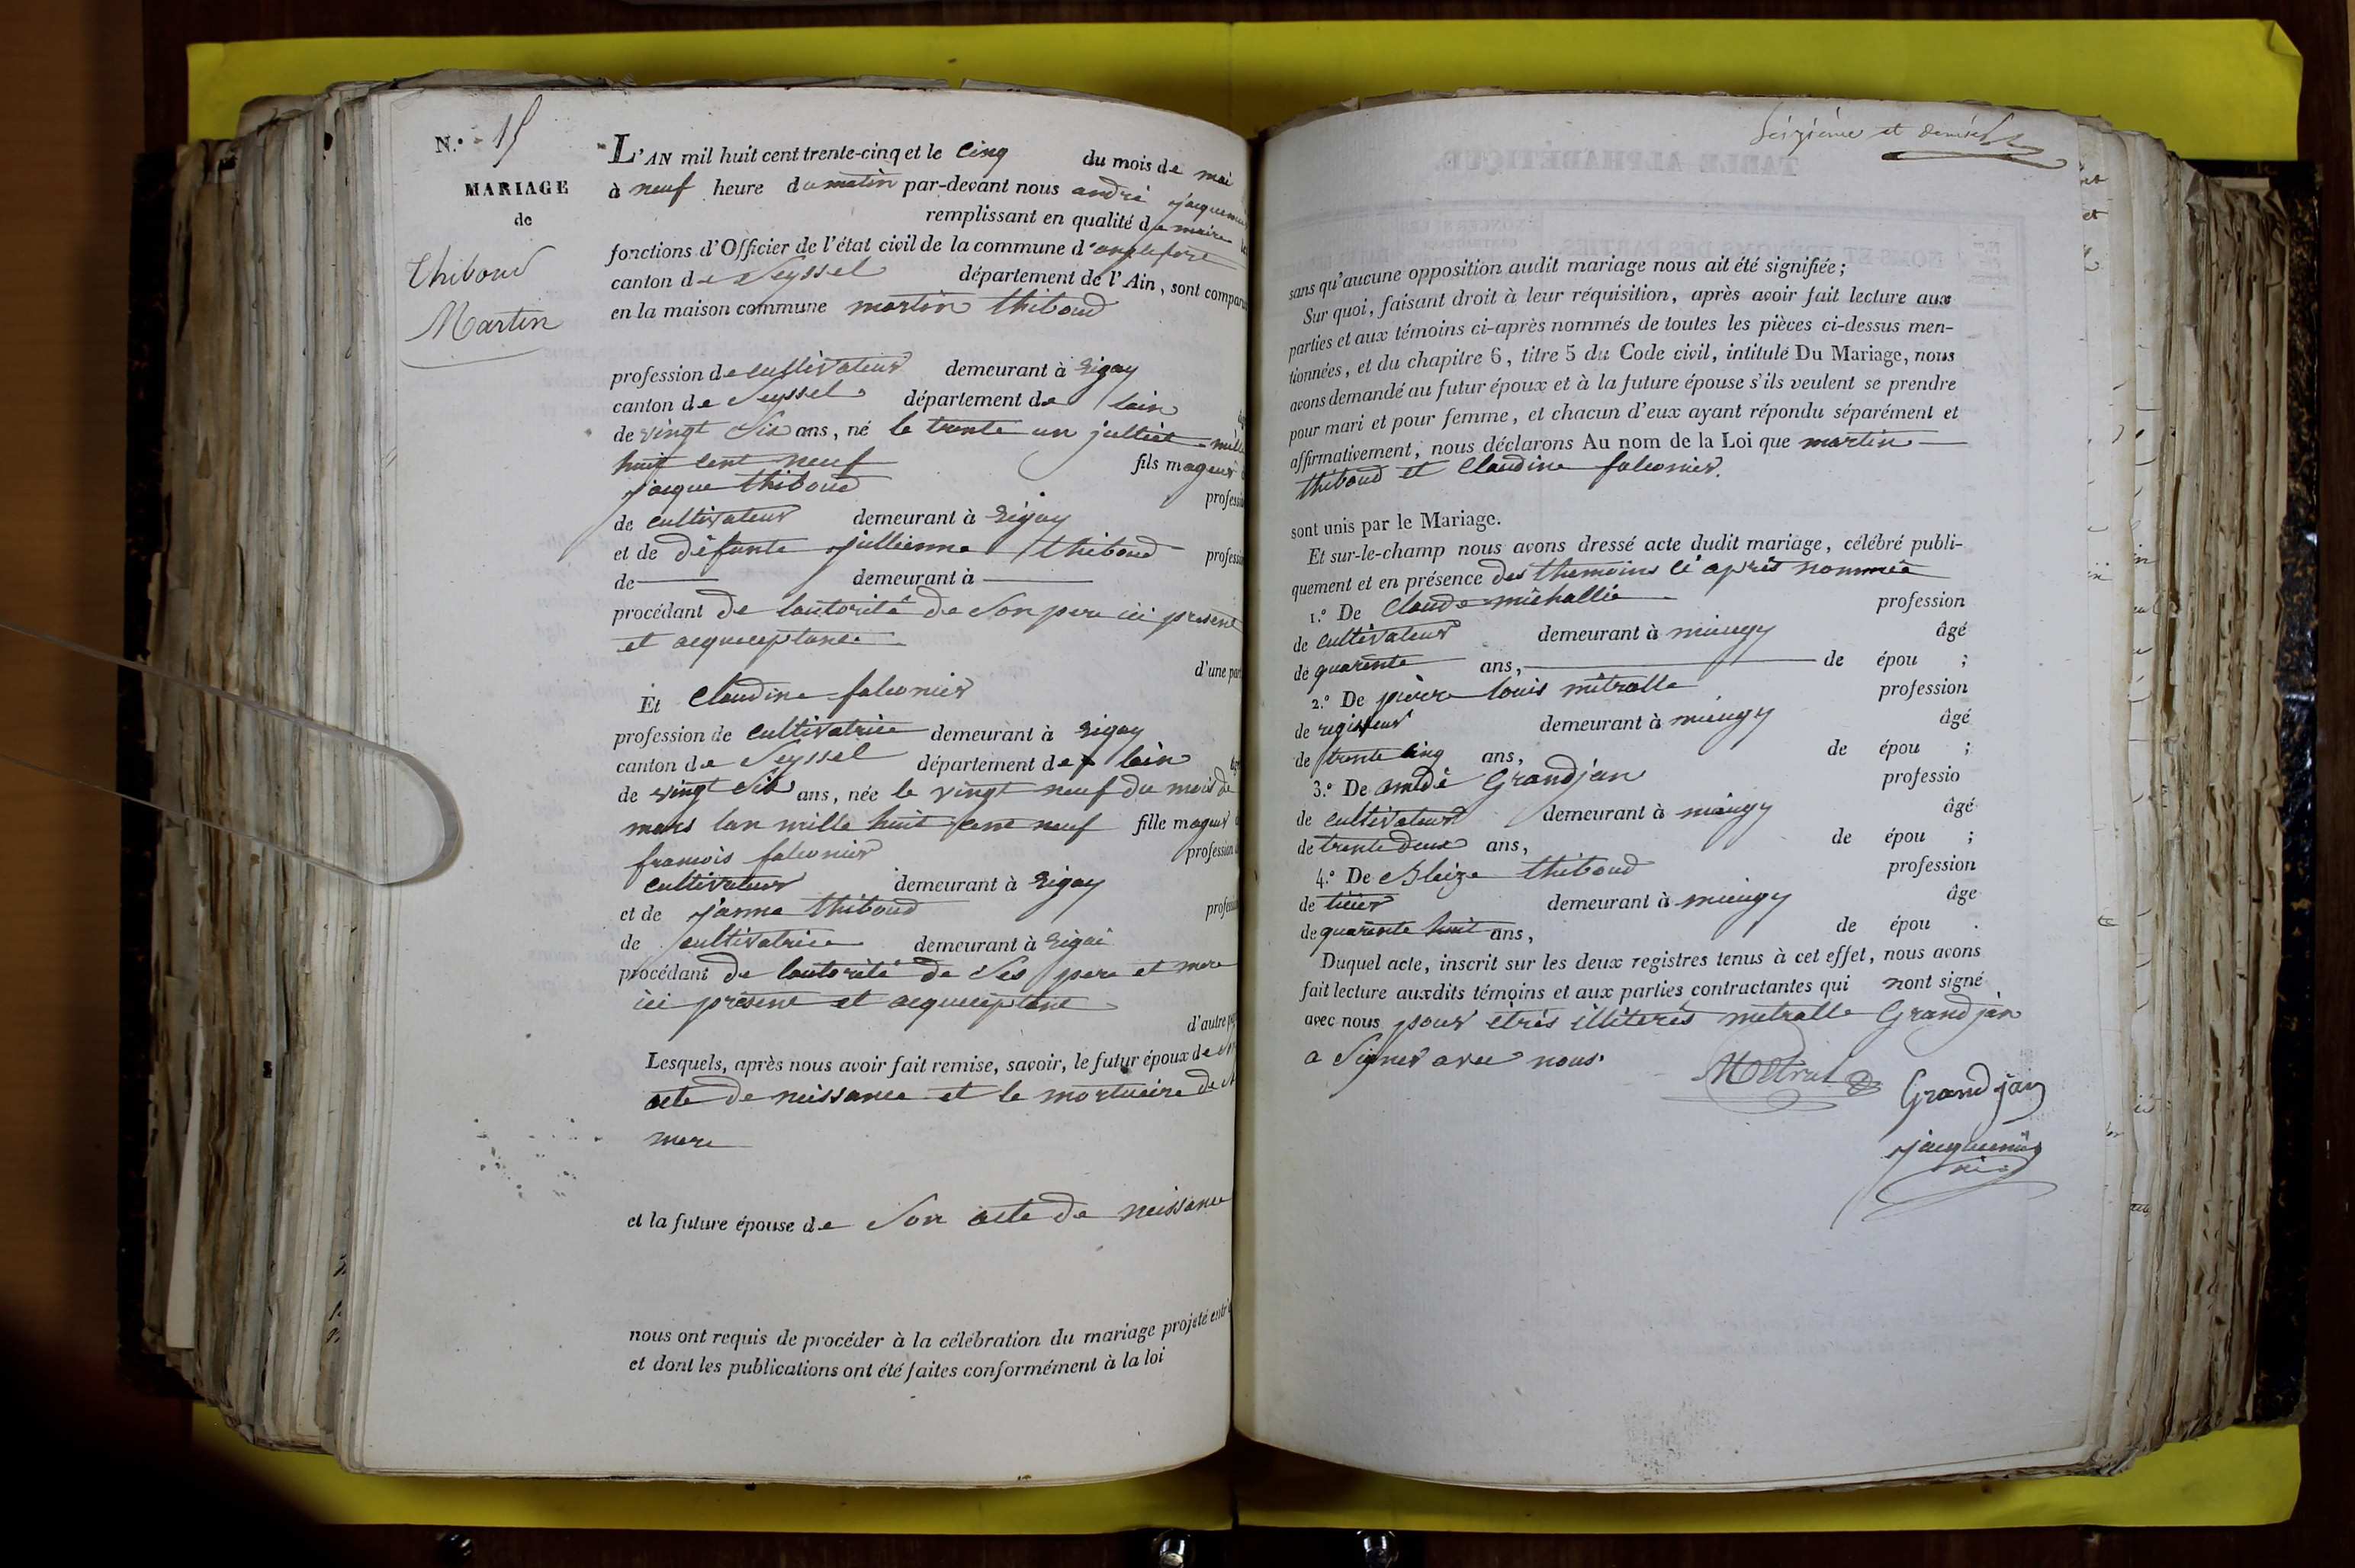 N.° 15
MARIAGE
de
thiboud
Martin
L'AN mil huit cent trente-cinq et le cinq du mois de mai
à neuf heure du matin par-devant nous andré
remplissant en qualité de maire
fonctions d'Officier de l'état civil de la commune d'anglefort
canton de Seyssel département de l'Ain, sont compar
en la maison commune martin thiboud
profession de cultivateur demeurant à Rigay
canton de Seyssel département de lain
de vingt Six ans, né le trente un julliet mille
huit cent neuf fils mageur
jacque thiboud professi
de cultivateur demeurant à Rigay
et de défunte jullienne thiboud professi
de demeurant à
procédant de lautorité de Son pere ici présent
et acqueeptance
d'une part
Et Claudine falconier
profession de cultivatrice demeurant à Rigay
canton de Seyssel département de lain
de vingt Six ans, née le vingt neuf du mois de
mars lan mille huit cent neuf fille mageur
francois falconier profession
cultivateur demeurant à Rigay
et de janne thiboud profess
de cultivatrice demeurant à Rigai
procédant de lautorité de Ses pere et mere
ici présent et acqueeptant
d'autre p
Lesquels, après nous avoir fait remise, savoir, le futur époux de
acte de neissance et le mortuaire de
mere
et la future épouse de Son acte de neissance
nous ont requis de procéder à la célébration du mariage projeté entr
et dont les publications ont été faites conformément à la loi
Seizième et dernier
sans qu'aucune opposition audit mariage nous ait été signifiée;
Sur quoi, faisant droit à leur réquisition, après avoir fait lecture aux
parties et aux témoins ci-après nommés de toutes les pièces ci-dessus men-
tionnées, et du chapitre 6, titre 5 du Code civil, intitulé Du Mariage, nous
avons demandé au futur époux et à la future épouse s'ils veulent se prendre
pour mari et pour femme, et chacun d'eux ayant répondu séparément et
affirmativement, nous déclarons Au nom de la Loi que martin
thiboud et Claudine falconier.
sont unis par le Mariage.
Et sur-le-champ nous avons dressé acte dudit mariage, célébré publi-
quement et en présence des themoins ci après nommée
1.° De Claude michallié profession
de cultivateur demeurant à mieugy âgé
de quarente ans, de épou ;
2.° De pierre louis métralle profession
de regisseur demeurant à mieugy âgé
de trente cinq ans, de épou ;
3.° De amédé Grandjan professio
de cultivateur demeurant à mieugy âgé
de trente deux ans, de épou ;
4.° De Bleize thiboud profession
de demeurant à mieugy âge
de quarente huit ans, de épou .
Duquel acte, inscrit sur les deux registres tenus à cet effet, nous avons
fait lecture auxdits témoins et aux parties contractantes qui nont signé
avec nous pour étrés illiterés metralle Grandjan
a Signer avec nous.
Métral
Grandjan